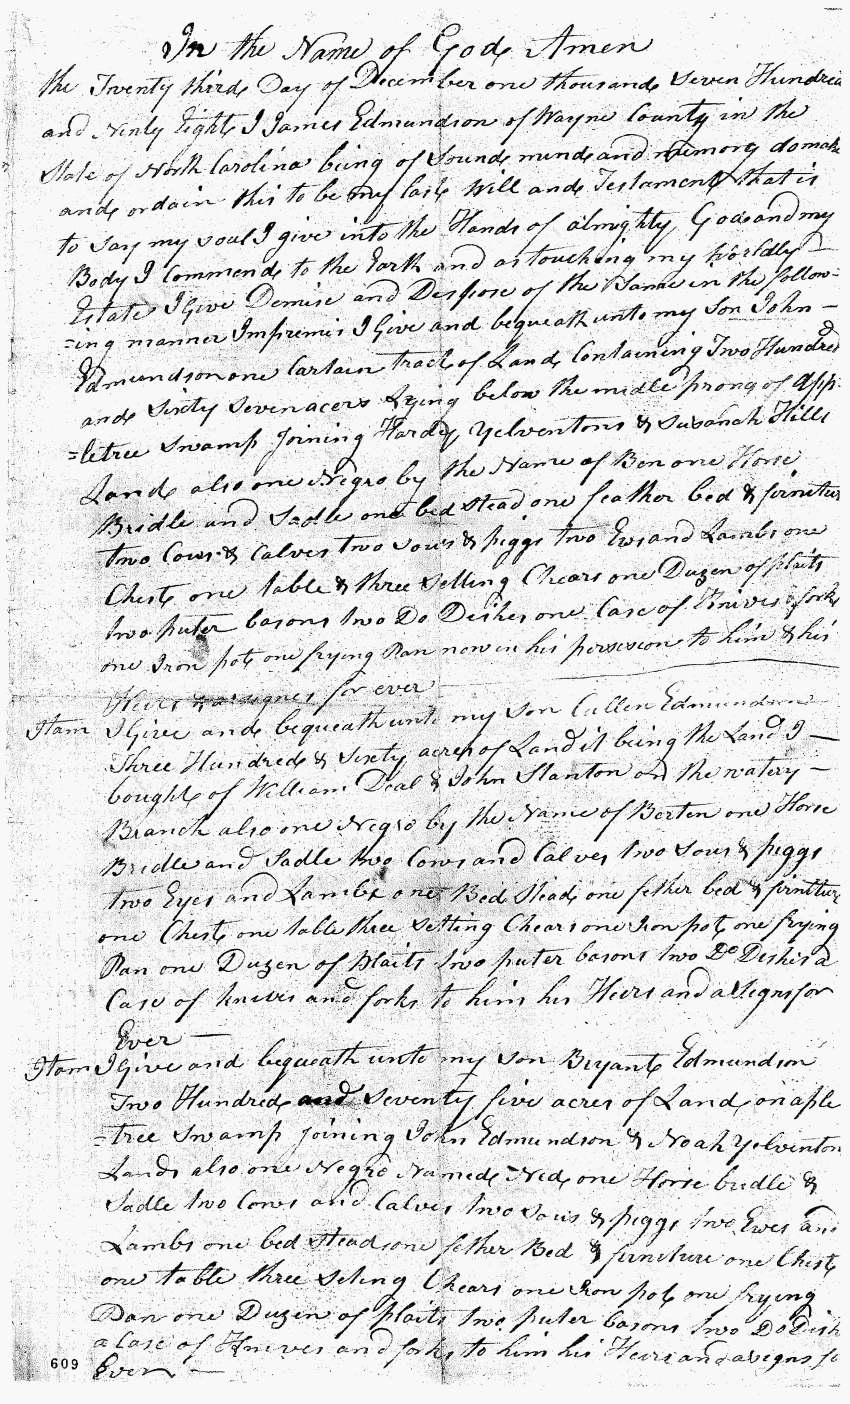 In the Name of God Amen
the Twenty third Day of December one thousand Seven Hundred
and Ninty Eight I James Edmundson of Wayne County in the
State of North Carolina being of Sound mind and memory do make
and ordain this to be my last Will and Testament that is
to say my soul I give into the Hands of almighty God and my
Body I commend to the Earth and as touching my Worldly
Estate I Give Demise and Despose of the Same in the follow=
=ing manner Impremis I Give and bequeath unto my Son John
Edmundson one Cartain tract of Land Containing Two Hundred
and Sixty Seven acers Lying below the midle prong of App=
=letree Swamp Joining Hardy Yelventons & Susanah Hills
Land also one Negro by the Name of Ben one Horse
Bridle and Sadle one bed stead one feather bed & firniture
two Cows & Calves two sows & piggs two Ews and Lambs one
Chest one table & three Setting Chears one Duzen of plaits
two puter basons two Do Dishes one Case of Knives & forks
one Iron pot one frying Pan now in his possession to him & his
Heirs & assignes for ever
Itam I Give and bequeath unto my Son Cullen Edmundson
Three Hundred & Sixty acres of Land it being the Land I
bought of William Deal & John Stanton on the watery
Branch also one Negro by the Name of Berten one Horse
Bridle and Sadle two Cows and Calves two Sows & piggs
two Eyes and Lambs one Bed Stead one fether bed & firniture
one Chest one table three Setting Chears one Iron pot one frying
Pan one Duzen of plaits two puter basons two Do Dishes a
Case of knives and forks to him his Heirs and assigns for
Ever
Itam I Give and bequeath unto my son Bryant Edmundson
Two Hundred and Seventy five acres of Land on aple
=tree Swamp Joining John Edmundson & Noah Yelventon
Lands also one Negro Named Ned one Horse bridle &
Sadle two Cows and Calves two sows & piggs two Ewes and
Lambs one bed stead one fether Bed & firniture one Chest
one table three Seting Chears one Iron pot one frying
Pan one Duzen of plaits two puter basons two Do Dish
a Case of Knives and forks to him his Heirs and asigns fo
Ever
609